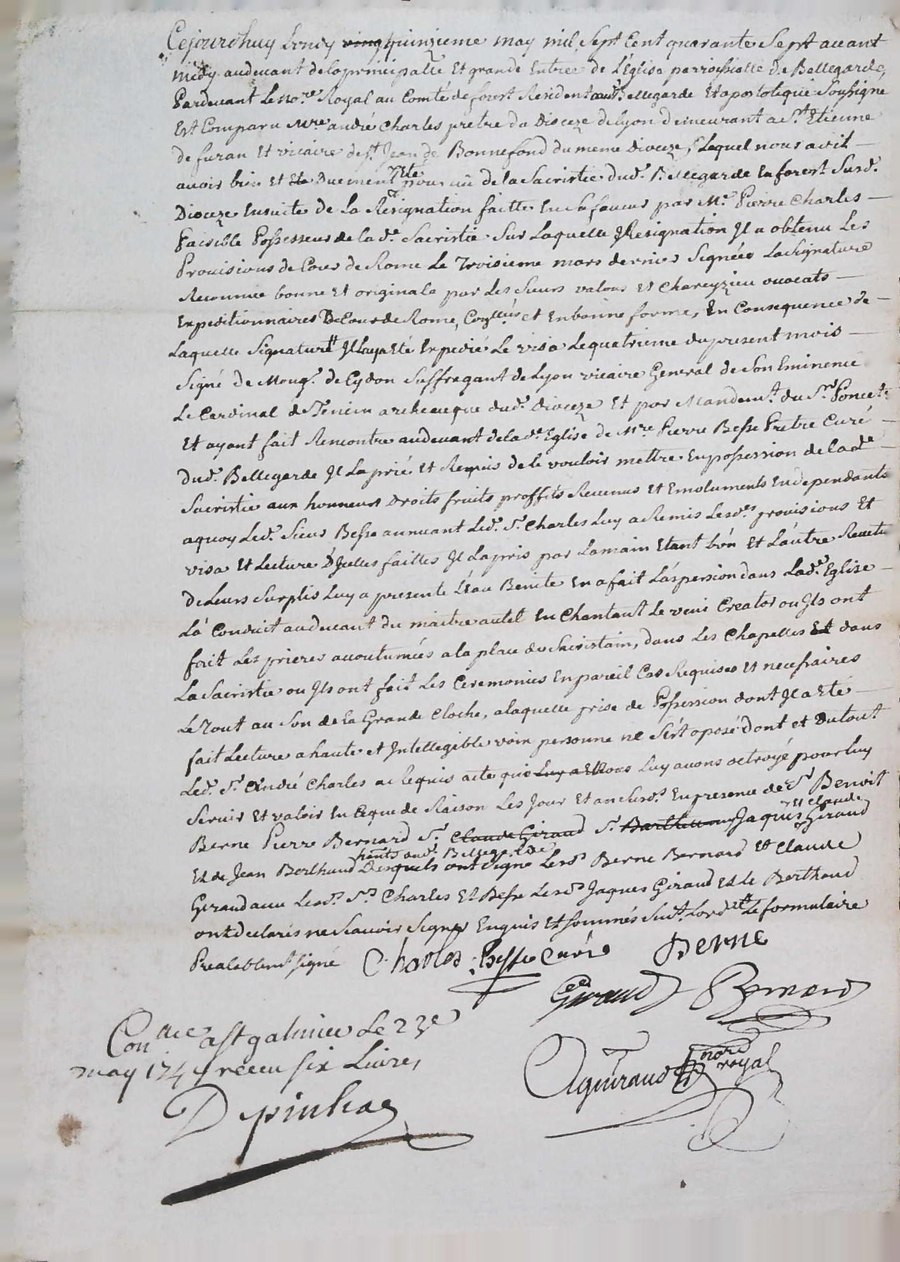 Cejourdhuy Lundy ving quinzieme may mil Sept Cent quarante Sept avant
midy audevant de la principalle Et grande Entrée de L'Eglise parroissialle de Bellegarde,
Pardevant Le no.re Royal au Comté de forest Resident aud. Bellegarde Et apostolique Soussigné
Est Comparu M.re andré Charles prêtre du Dioceze de Lyon demeurant a S.t Etienne
de furan Et vicaire de S.t Jean de Bonnefond du meme Dioceze, Lequel nous a dit
avoir bien et Duement Eté pourvû de la Sacristie dud. Bellegarde En forest Susd.
Dioceze Ensuite de La Résignation faitte En Sa faveur par M.e Pierre Charles
Paisible Possesseur de lad.e Sacristie Sur Laquelle Resignation Il a obtenu Les
Provisions de Cour de Rome Le Troisieme mars dernier Signée La Signature
Reconnue bonne Et originale par Les Sieurs valous Et Chareyzieu avocats
Expeditionnaires De Cour de Rome, et En bonne forme, En Consequence de
Laquelle Signature Il luy a Eté Expedié Le visa Le quatrieme du present mois
Signé de Mong.r de Cydon Suffragant de Lyon vicaire General de Son Eminence
Le Cardinal de Tencin archeveque dud. Dioceze Et par Mandem.t du S.r Poncet
Et ayant fait Rencontre audevant de lad.e Eglise de M.re Pierre Besse Prêtre Curé
dud. Bellegarde Il La prié Et Requis de le vouloir mettre En possession de lad.e
Sacristie aux honneurs Droits fruits proffits Revenus Et Emoluments En dependants
aquoy Led. Sieur Besse annuant Led. S.r Charles Luy a Remis Lesd. provisions Et
visa Et Lecture D'Icelles faittes Il La pris par La main Etant L'un Et L'autre Revetu
de Leurs Surplis Luy a presenté L'eau Benite En a fait L'aspersion dans Lad.e Eglise
La Conduit audevant du maitre autel En Chantant Le veni Creator ou Ils ont
fait Les prieres accoutumées a la place du Sacristain, dans Les Chapelles Et dans
La Sacristie ou Ils ont fait Les Ceremonies En pareil Cas Requises Et necessaires
Le Tout au Son de la Grande Cloche, a laquelle prise de Possession dont Il a Eté
fait Lecture a haute et Intellegible voix personne ne S'est oposé dont et Dutout
Led. S.r André Charles a Requis acte que nous Luy avons octroyé pour luy
Servir Et valoir En Ce que de Raison Les Jour Et an Susd. En presence de S.r Benoit
Berne Pierre Bernard S.r Claude Giraud S.r Jaques Et Claude Giraud
Et de Jean Berthaud habitants aud. Bellegarde Desquels ont Signé Lesd. Berne Bernard Et Claude
Giraud avec Lesd. S.rs Charles Et Besse Lesd. Jaques Giraud Et Le Berthaud
ont declarés ne Scavoir Signer Enquis Et Sommés Suiv.t Lord.ce Le formulaire
Prealablem.t Signé Charles Besse Curé Berne
Giraud Bernard
Con.llé a St galmier Le 23e
may 1747 receu six Livres,
Depinhac
Aguiraud no.re royal